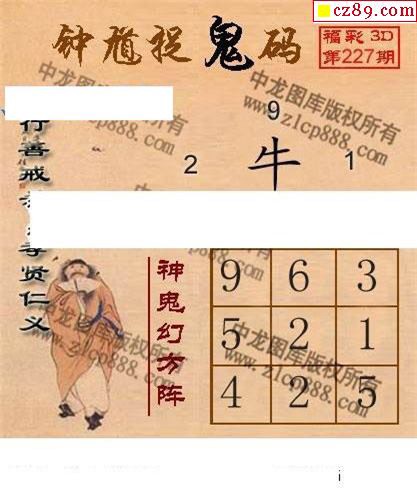 cz89.com
钟馗捉鬼码
福彩 3D
第227期
中龙图库版权所有
www.zlcp888.com
9
2 牛 1
行善戒
孝贤仁义
神鬼幻方阵
9 6 3
5 2 1
4 2 5
中龙图库版权所有
www.zlcp888.com
i